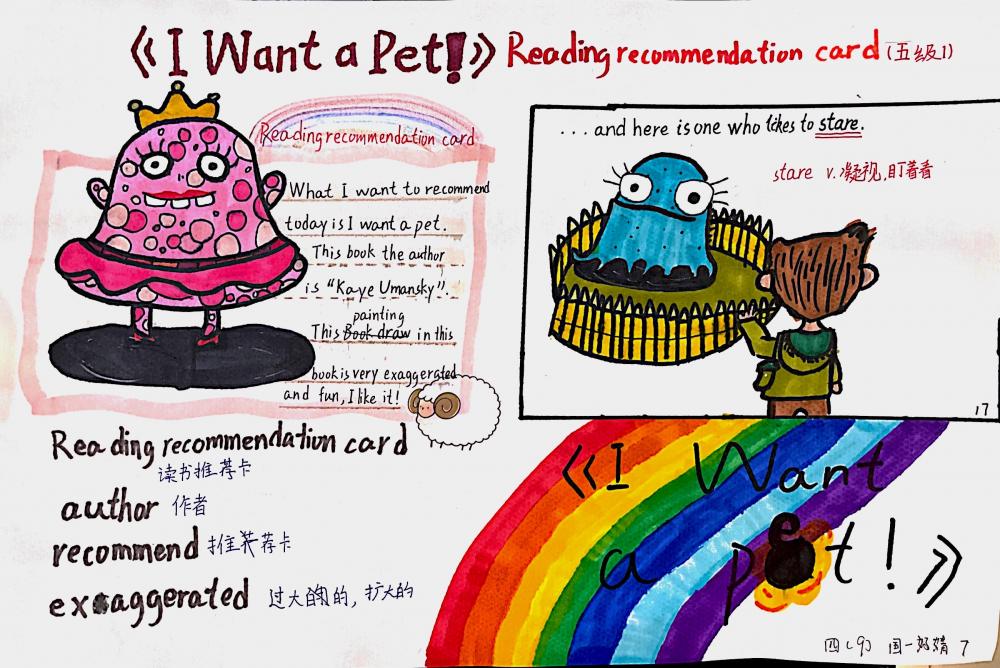 《I Want a Pet!》 Reading recommendation card (五级1)
Reading recommendation card
What I want to recommend
today is I want a pet.
This book the author
is "Kaye Umansky".
painting
This Book draw in this
book is very exaggerated
and fun, I like it!
...and here is one who likes to stare.
stare v.凝视,盯着看
17
Reading recommendation card
读书推荐卡
author 作者
recommend 推荐卡
exaggerated 过大的,扩大的
《I Want
a pet!》
四(9) 7